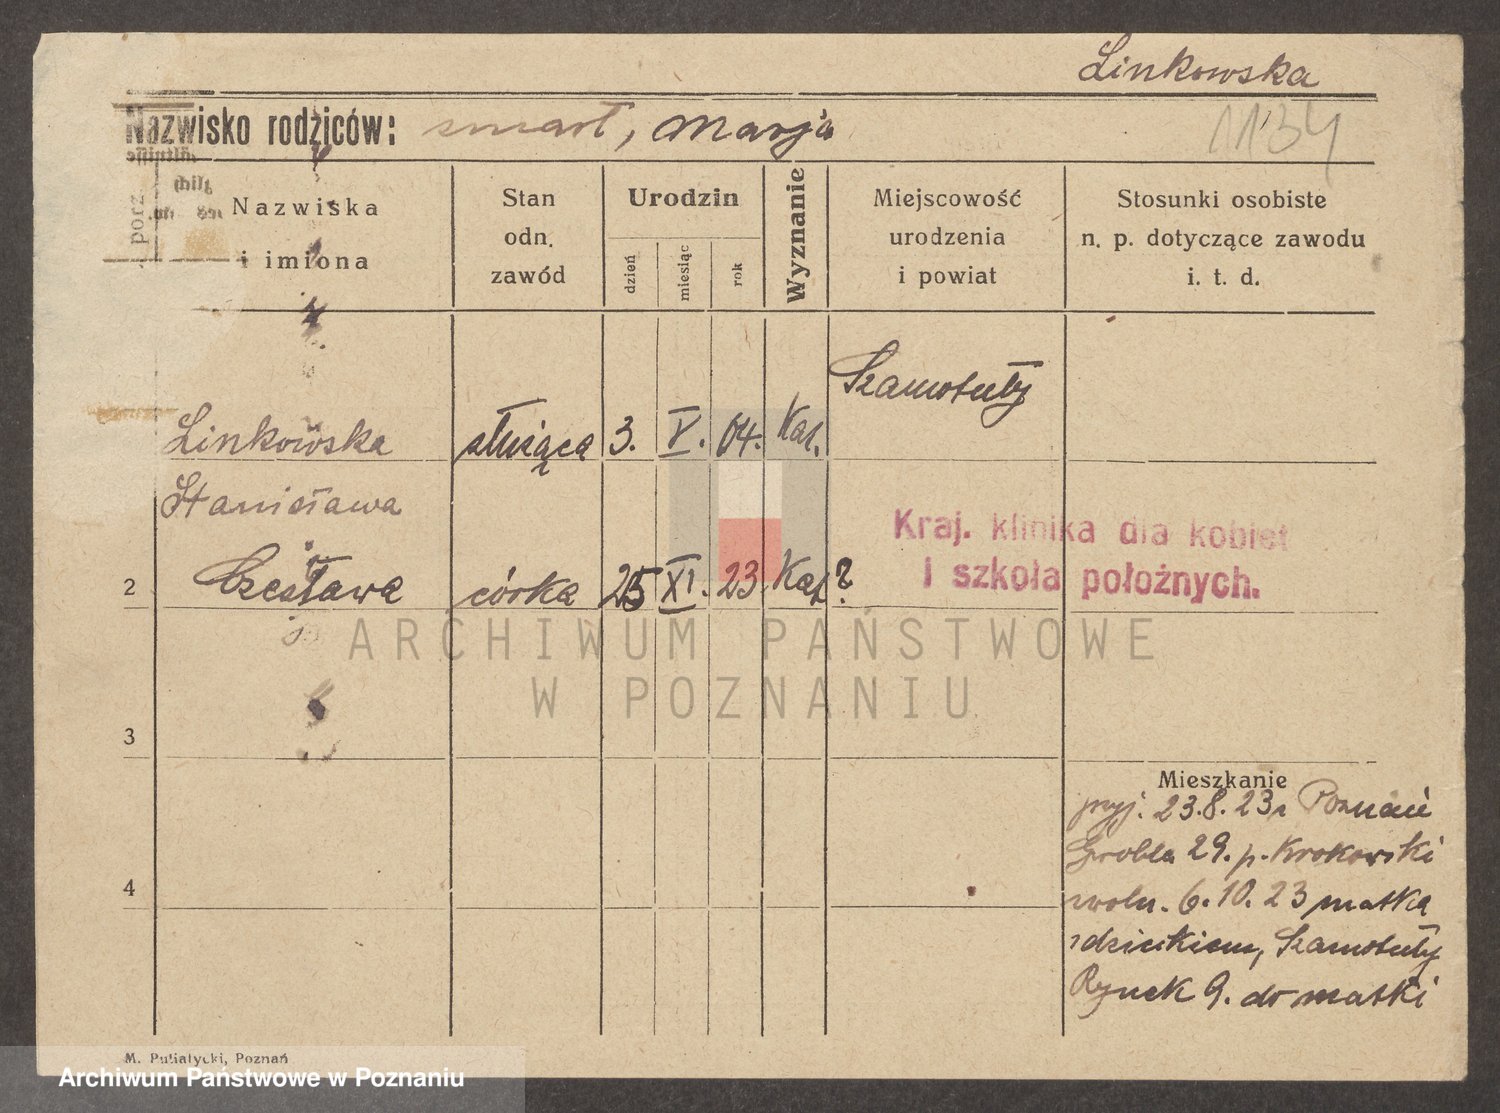 Linkowska
1134
Nazwisko rodziców: smarł, Marja
porz.
Nazwiska
i imiona
Stan
odn.
zawód
Urodzin
dzień
miesiąc
rok
Wyznanie
Miejscowość
urodzenia
i powiat
Stosunki osobiste
n. p. dotyczące zawodu
i. t. d.
Szamotuły
Linkowska służąca 3. V. 04. Kat.
Stanisława
Kraj. klinika dla kobiet
i szkoła położnych.
2 Czesława córka 25 XI. 23 Kat?
ARCHIWUM PAŃSTWOWE
W POZNANIU
3
Mieszkanie
przyj. 23.8.23r Poznań
Grobla 29. p. Krokowski
zwoln. 6.10.23 matka
z dzieckiem, Szamotuły
Rynek 9. do matki
4
M. Putiatycki, Poznań
Archiwum Państwowe w Poznaniu